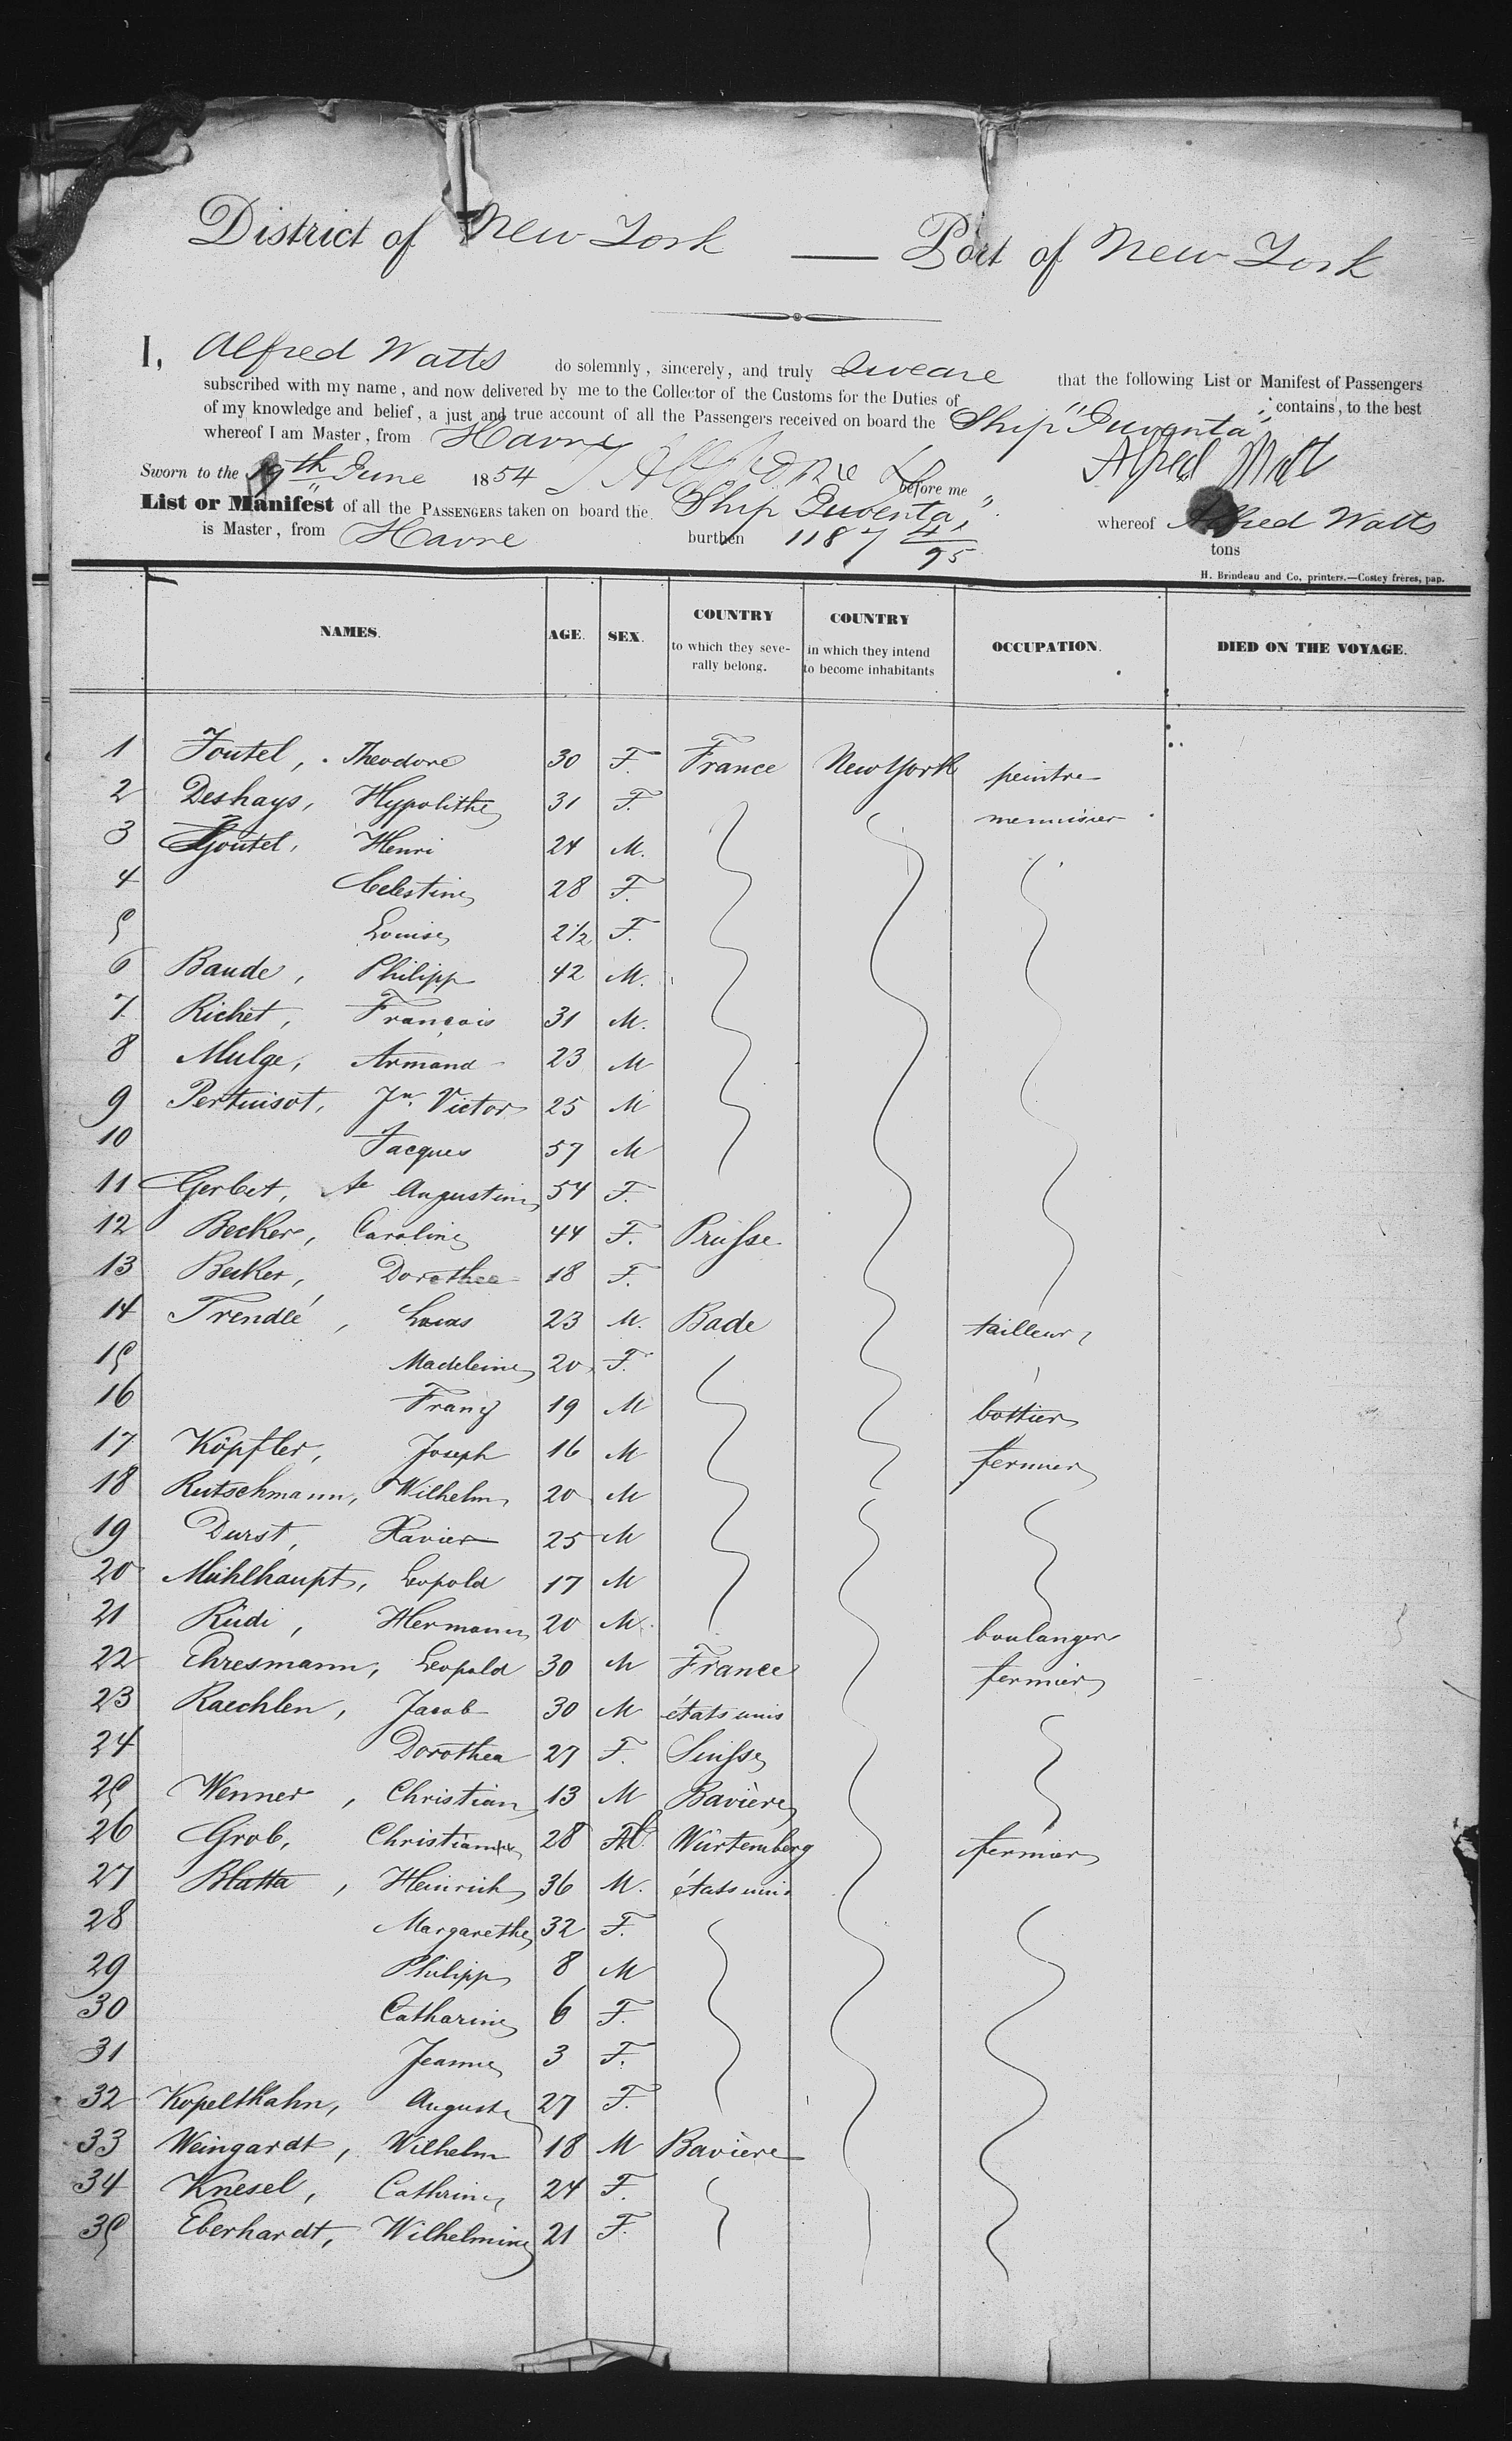 District of New York — Port of New York
I, Alfred Watts do solemnly, sincerely, and truly Sweare that the following List or Manifest of Passengers
subscribed with my name, and now delivered by me to the Collector of the Customs for the Duties of
of my knowledge and belief, a just and true account of all the Passengers received on board the Ship "Juventa" contains, to the best
whereof I am Master, from Havre
Sworn to the 19th June 1854 before me Alfred Watts
List or Manifest of all the PASSENGERS taken on board the Ship Juventa, whereof Alfred Watts
is Master, from Havre burthen 1187 4/95 tons
H. Brindeau and Co, printers.—Costey frères, pap.
NAMES. AGE. SEX. COUNTRY to which they severally belong. COUNTRY in which they intend to become inhabitants OCCUPATION. DIED ON THE VOYAGE.
1 Joutel, Theodore 30 F. France New York peintre
2 Deshays, Hypolithe 31 F. menuisier
3 Joutel, Henri 24 M.
4 Celestine 28 F.
5 Louise 2 1/2 F.
6 Baude, Philipp 42 M.
7 Richet, François 31 M.
8 Mulge, Armand 23 M
9 Pertuisot, Jn. Victor 25 M
10 Jacques 57 M
11 Gerbet, Augustine 54 F.
12 Becker, Caroline 44 F. Prusse
13 Becker, Dorothea 18 F.
14 Trendlé, Lucas 23 M. Bade tailleur
15 Madeleine 20 F.
16 Franz 19 M bottier
17 Köpfler, Joseph 16 M fermier
18 Rutschmann, Wilhelm 20 M
19 Durst, Xavier 25 M
20 Mühlhaupt, Leopold 17 M
21 Rüdi, Hermann 20 M. boulanger
22 Ehresmann, Leopold 30 M France fermier
23 Raechlen, Jacob 30 M états unis
24 Dorothea 27 F. Suisse
25 Wenner, Christian 13 M Bavière
26 Grob, Christian 28 M. Würtemberg fermier
27 Blatta, Heinrich 36 M. états unis
28 Margarethe 32 F.
29 Philipp 8 M
30 Catharine 6 F.
31 Jeanne 3 F.
32 Kopeltkahn, Auguste 27 F.
33 Weingardt, Wilhelm 18 M Bavière
34 Knesel, Cathrine 24 F.
35 Eberhardt, Wilhelmine 21 F.